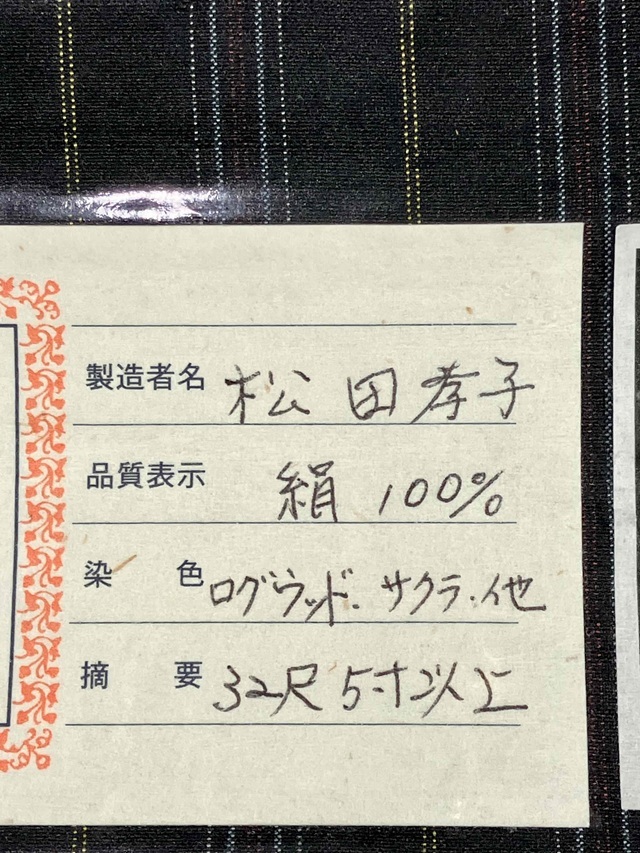 製造者名 松田孝子
品質表示 絹 100%
染色 ログウッド.サクラ.他
摘要 32尺5寸以上